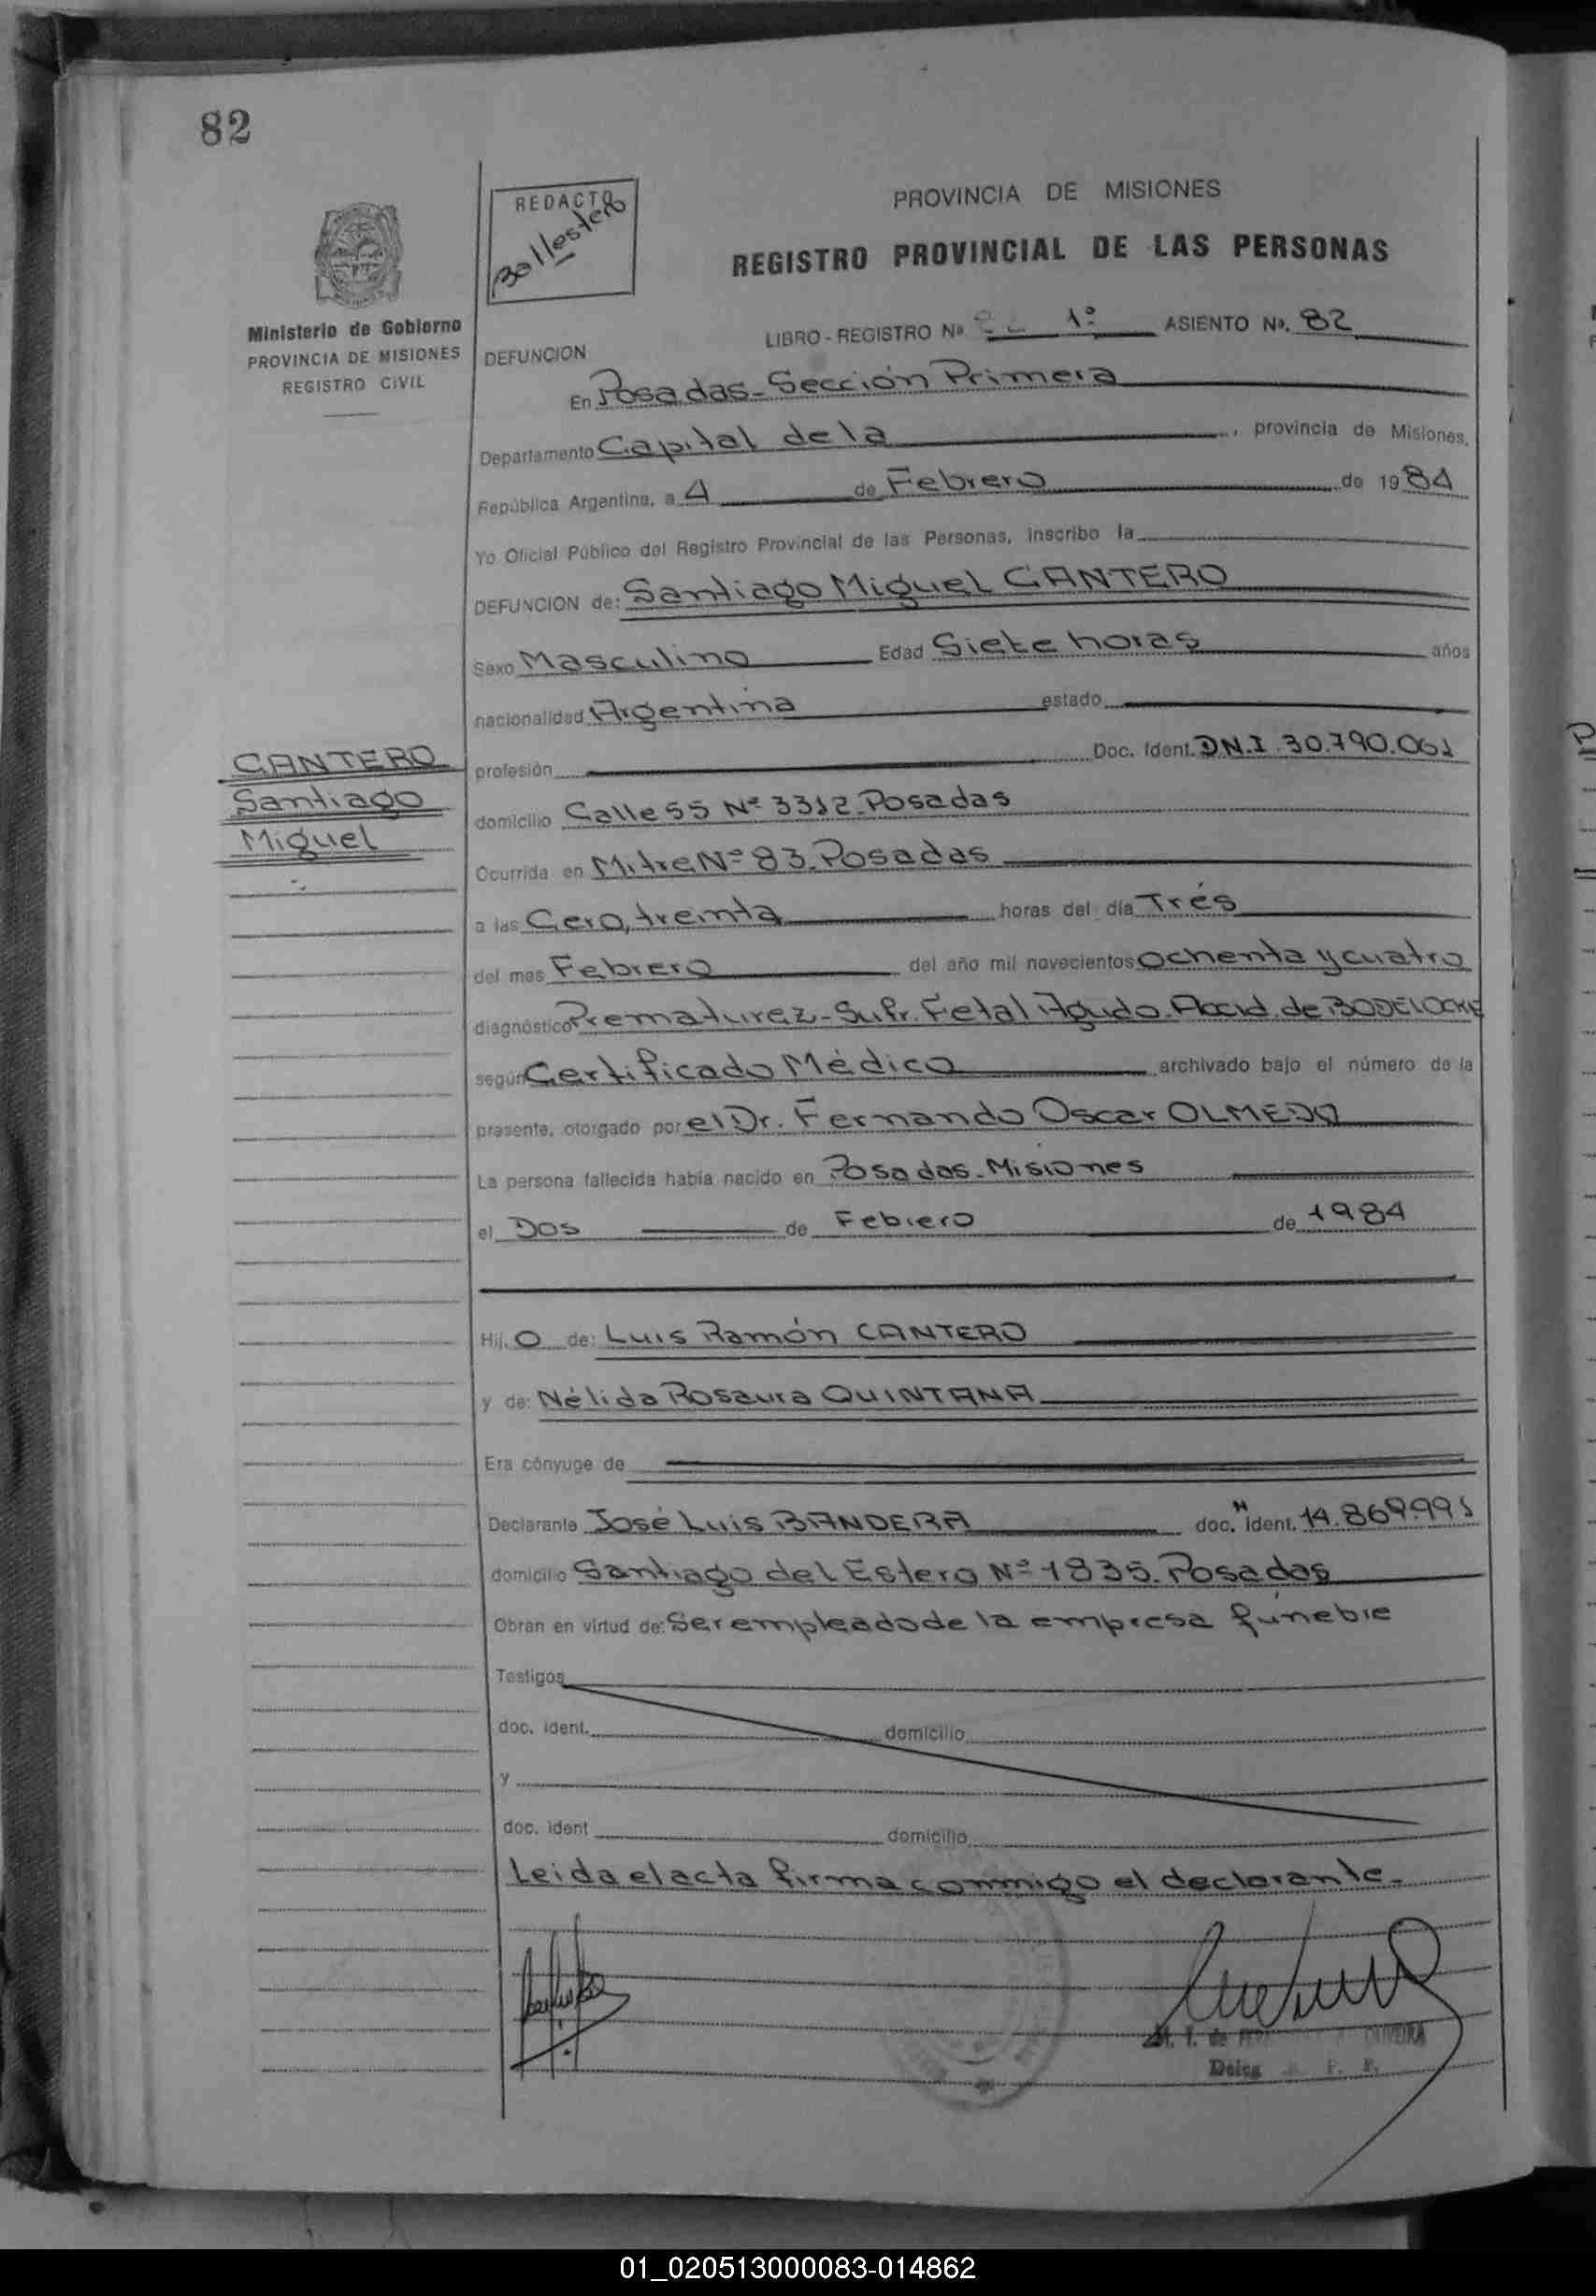 82
REDACTO
Ballestero
PROVINCIA DE MISIONES
REGISTRO PROVINCIAL DE LAS PERSONAS
Ministerio de Gobierno
PROVINCIA DE MISIONES
REGISTRO CIVIL
LIBRO - REGISTRO Nº 1º ASIENTO Nº. 82
DEFUNCION
En Posadas - Sección Primera
Departamento Capital de la , provincia de Misiones,
República Argentina, a 4 de Febrero de 1984
Yo Oficial Público del Registro Provincial de las Personas, inscribo la
DEFUNCION de: Santiago Miguel CANTERO
Sexo Masculino Edad Siete horas años
nacionalidad Argentina estado
CANTERO
Santiago
Miguel
profesión Doc. Ident. D.N.I. 30.790.061
domicilio Calle 55 Nº 3312 - Posadas
Ocurrida en Mitre Nº 83. Posadas
a las Cero, treinta horas del día Trés
del mes Febrero del año mil novecientos ochenta y cuatro
diagnóstico Prematurez - Sufr. Fetal Agudo. Accid. de BODELOCKE
según Certificado Médico archivado bajo el número de la
presente, otorgado por el Dr. Fernando Oscar OLMEDO
La persona fallecida había nacido en Posadas - Misiones
el Dos de Febrero de 1984
Hij. O de: Luis Ramón CANTERO
y de: Nélida Rosaura QUINTANA
Era cónyuge de
Declarante José Luis BANDERA doc. ident. 14.869.991
domicilio Santiago del Estero Nº 1835. Posadas
Obran en virtud de: Ser empleado de la empresa fúnebre
Testigos
doc. ident. domicilio
y
doc. ident domicilio
Leida el acta firma conmigo el declarante.
M. T. de OLIVEIRA
Deleg R. P. P.
01_020513000083-014862